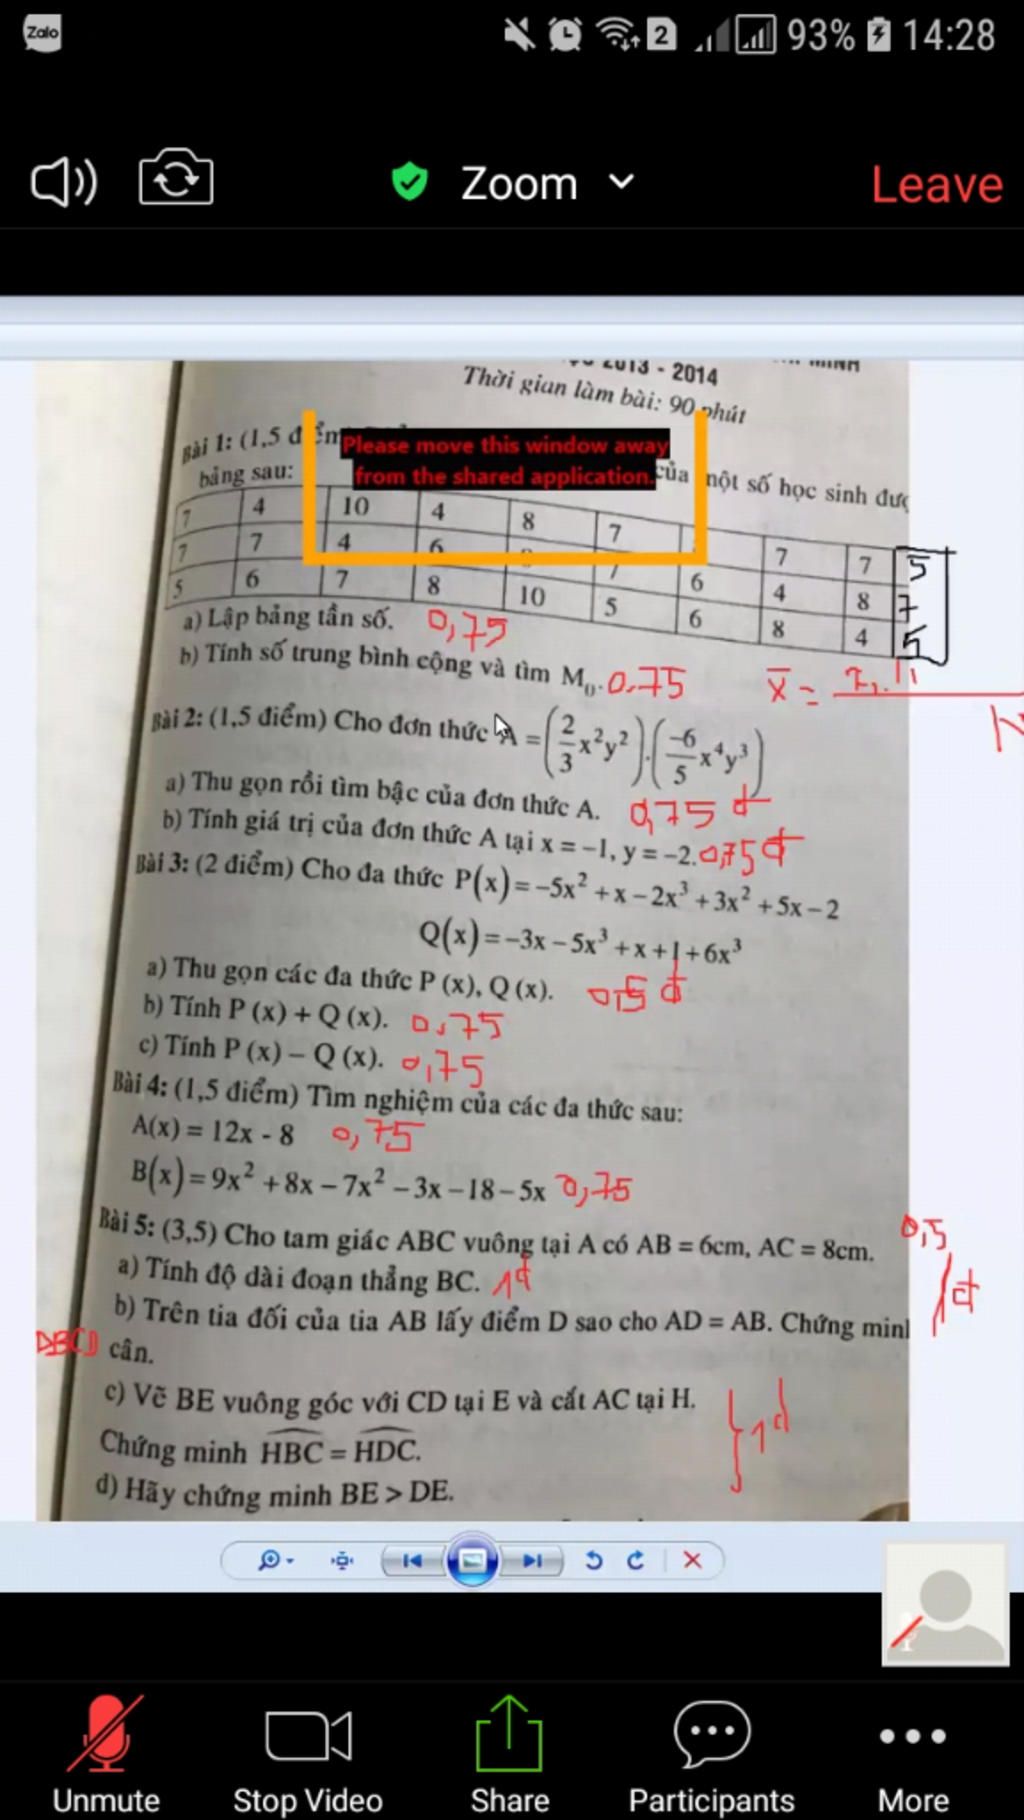 Zalo
2 93% 14:28
Zoom Leave
2013 - 2014 MINH
Thời gian làm bài: 90 phút
Bài 1: (1,5 điểm)
Please move this window away
from the shared application.
của một số học sinh
bảng sau:
7 4 10 4 8 7 7 7 5
7 7 4 6 7 6 4 8 7
5 6 7 8 10 5 6 8 4 5
a) Lập bảng tần số. 0,75
b) Tính số trung bình cộng và tìm M₀. 0.75 x̄ =
Bài 2: (1,5 điểm) Cho đơn thức A = (2/3 x²y²).(-6/5 x⁴y³)
a) Thu gọn rồi tìm bậc của đơn thức A. 0,75 đ
b) Tính giá trị của đơn thức A tại x = –1, y = –2. 0,75 đ
Bài 3: (2 điểm) Cho đa thức P(x) = –5x² + x – 2x³ + 3x² + 5x – 2
Q(x) = –3x – 5x³ + x + 1 + 6x³
a) Thu gọn các đa thức P (x), Q (x). 0,5 đ
b) Tính P (x) + Q (x). 0,75
c) Tính P (x) – Q (x). 0,75
Bài 4: (1,5 điểm) Tìm nghiệm của các đa thức sau:
A(x) = 12x - 8 0,75
B(x) = 9x² + 8x – 7x² – 3x – 18 – 5x 0,75
Bài 5: (3,5) Cho tam giác ABC vuông tại A có AB = 6cm, AC = 8cm. 0,5
a) Tính độ dài đoạn thẳng BC. 1đ
b) Trên tia đối của tia AB lấy điểm D sao cho AD = AB. Chứng minh 1đ
ΔBCD cân.
c) Vẽ BE vuông góc với CD tại E và cắt AC tại H.
1đ
Chứng minh HBC = HDC.
d) Hãy chứng minh BE > DE.
Unmute Stop Video Share Participants More